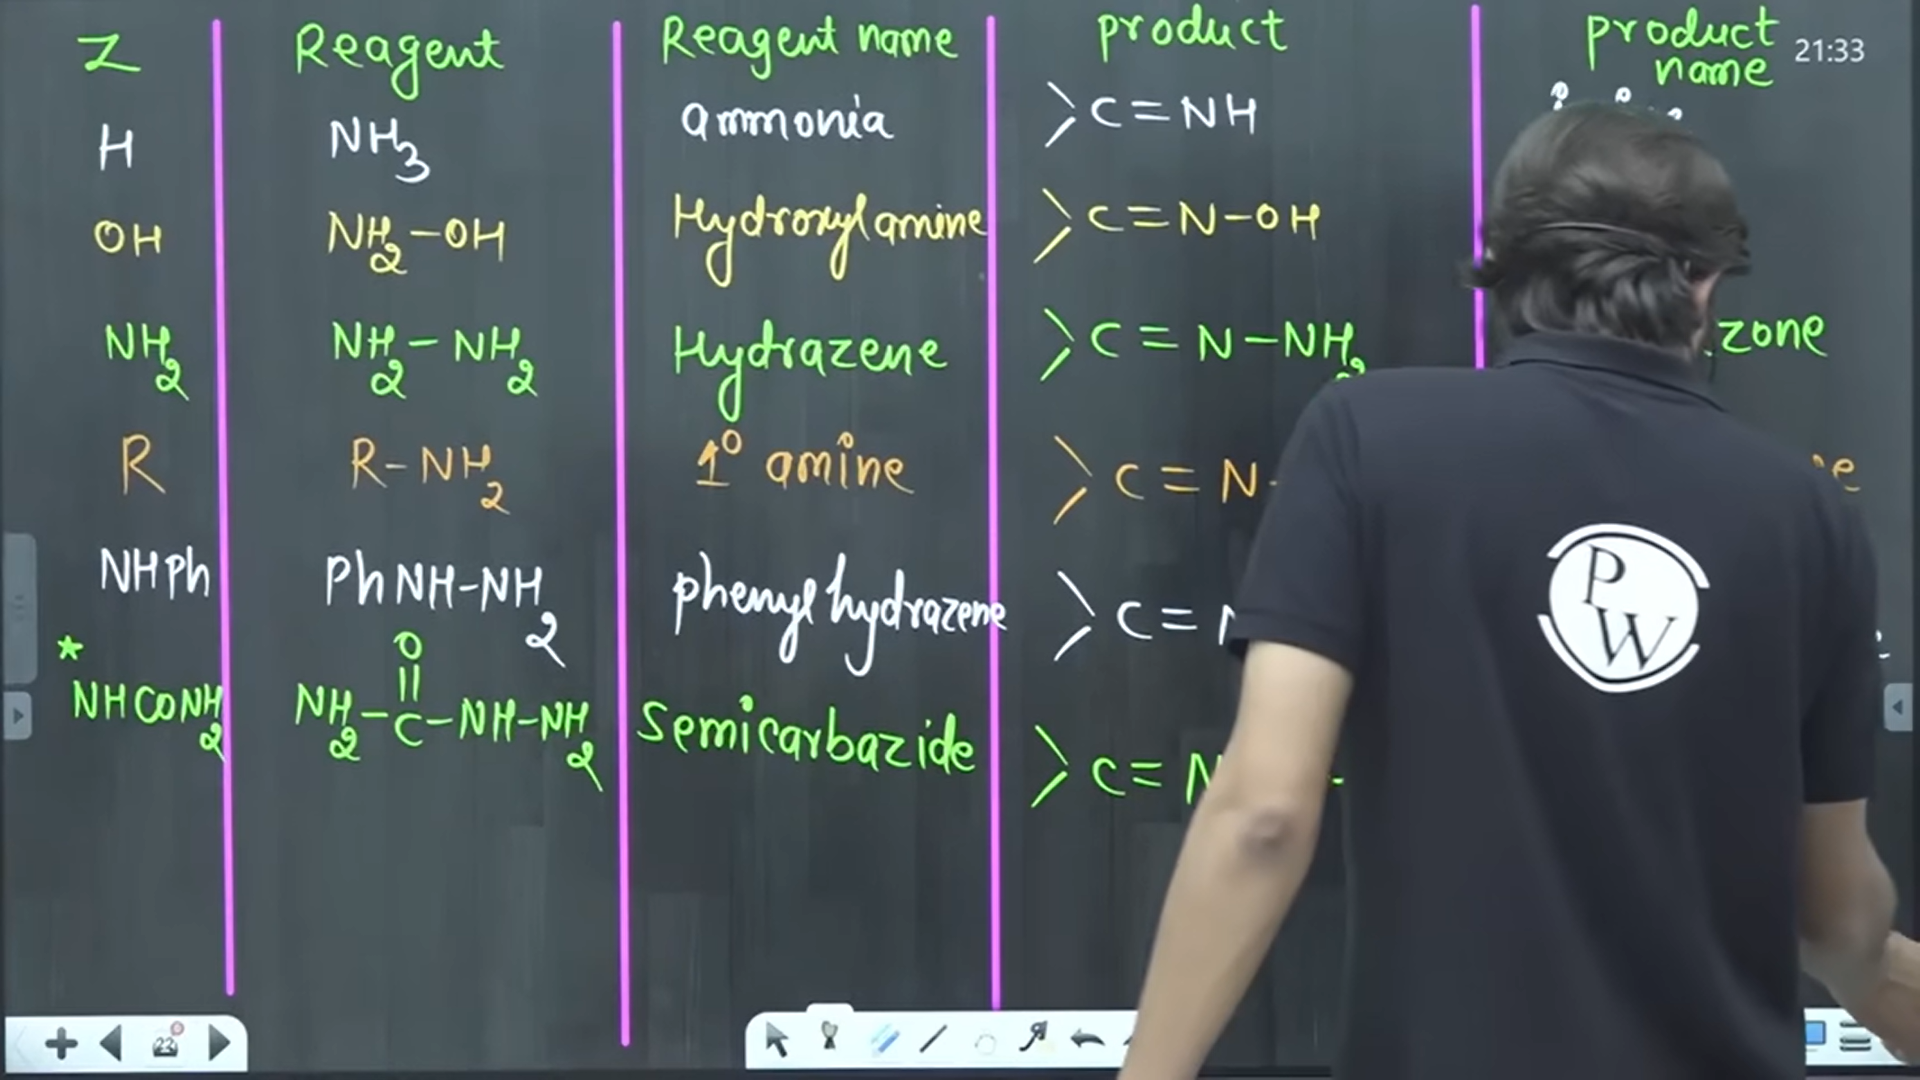 Z Reagent Reagent name product product name
21:33
H NH3 ammonia >C=NH
OH NH2-OH Hydroxylamine >C=N-OH
NH2 NH2-NH2 Hydrazene >C=N-NH2 zone
R R-NH2 1° amine >C=N-
NHPh PhNH-NH2 phenyl hydrazene >C=
* NHCONH2 NH2-C-NH-NH2 Semicarbazide >C=N
O
PW
22